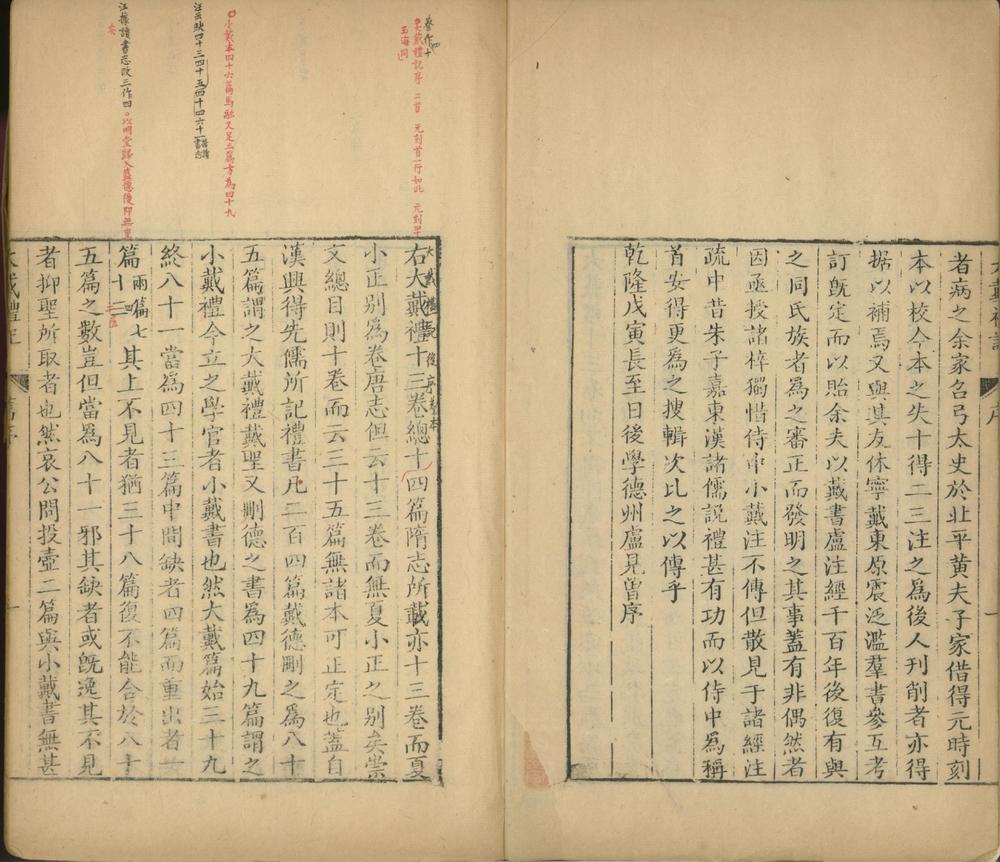 者病之余家召弓太史於北平黄夫子家借得元時刻
本以校今本之失十得二三注之為後人刊削者亦得
据以補焉又與其友休寧戴東原震泛濫羣書參互考
訂既定而以貽余夫以戴書盧注經千百年後復有與
之同氏族者為之審正而發明之其事蓋有非偶然者
因亟授諸梓獨惜侍中小戴注不傳但散見于諸經注
疏中昔朱子嘉東漢諸儒説禮甚有功而以侍中為稱
首安得更為之搜輯次比之以傳乎
乾隆戊寅長至日後學德州盧見曾序
卷作四十
大戴禮記序 二首 元刻首一行如此 元刻
玉海同
小戴本四十六篇馬融又足三篇方為四十九
汪云缺四十三四十五四十四六十一
汪據讀書志改三作四○以明堂歸入盛德後即無重
矣
右大戴禮十三卷總十四篇隋志所載亦十三卷而夏
小正别為卷唐志但云十三卷而無夏小正之别矣崇
文總目則十卷而云三十五篇無諸本可正定也蓋自
漢興得先儒所記禮書凡二百四篇戴德刪之為八十
五篇謂之大戴禮戴聖又刪德之書為四十九篇謂之
小戴禮今立之學官者小戴書也然大戴篇始三十九
終八十一當為四十三篇中間缺者四篇而重出者一
篇兩篇七十三其上不見者猶三十八篇復不能合於八十
五篇之數豈但當為八十一邪其缺者或既逸其不見
者抑聖所取者也然哀公問投壺二篇與小戴書無甚